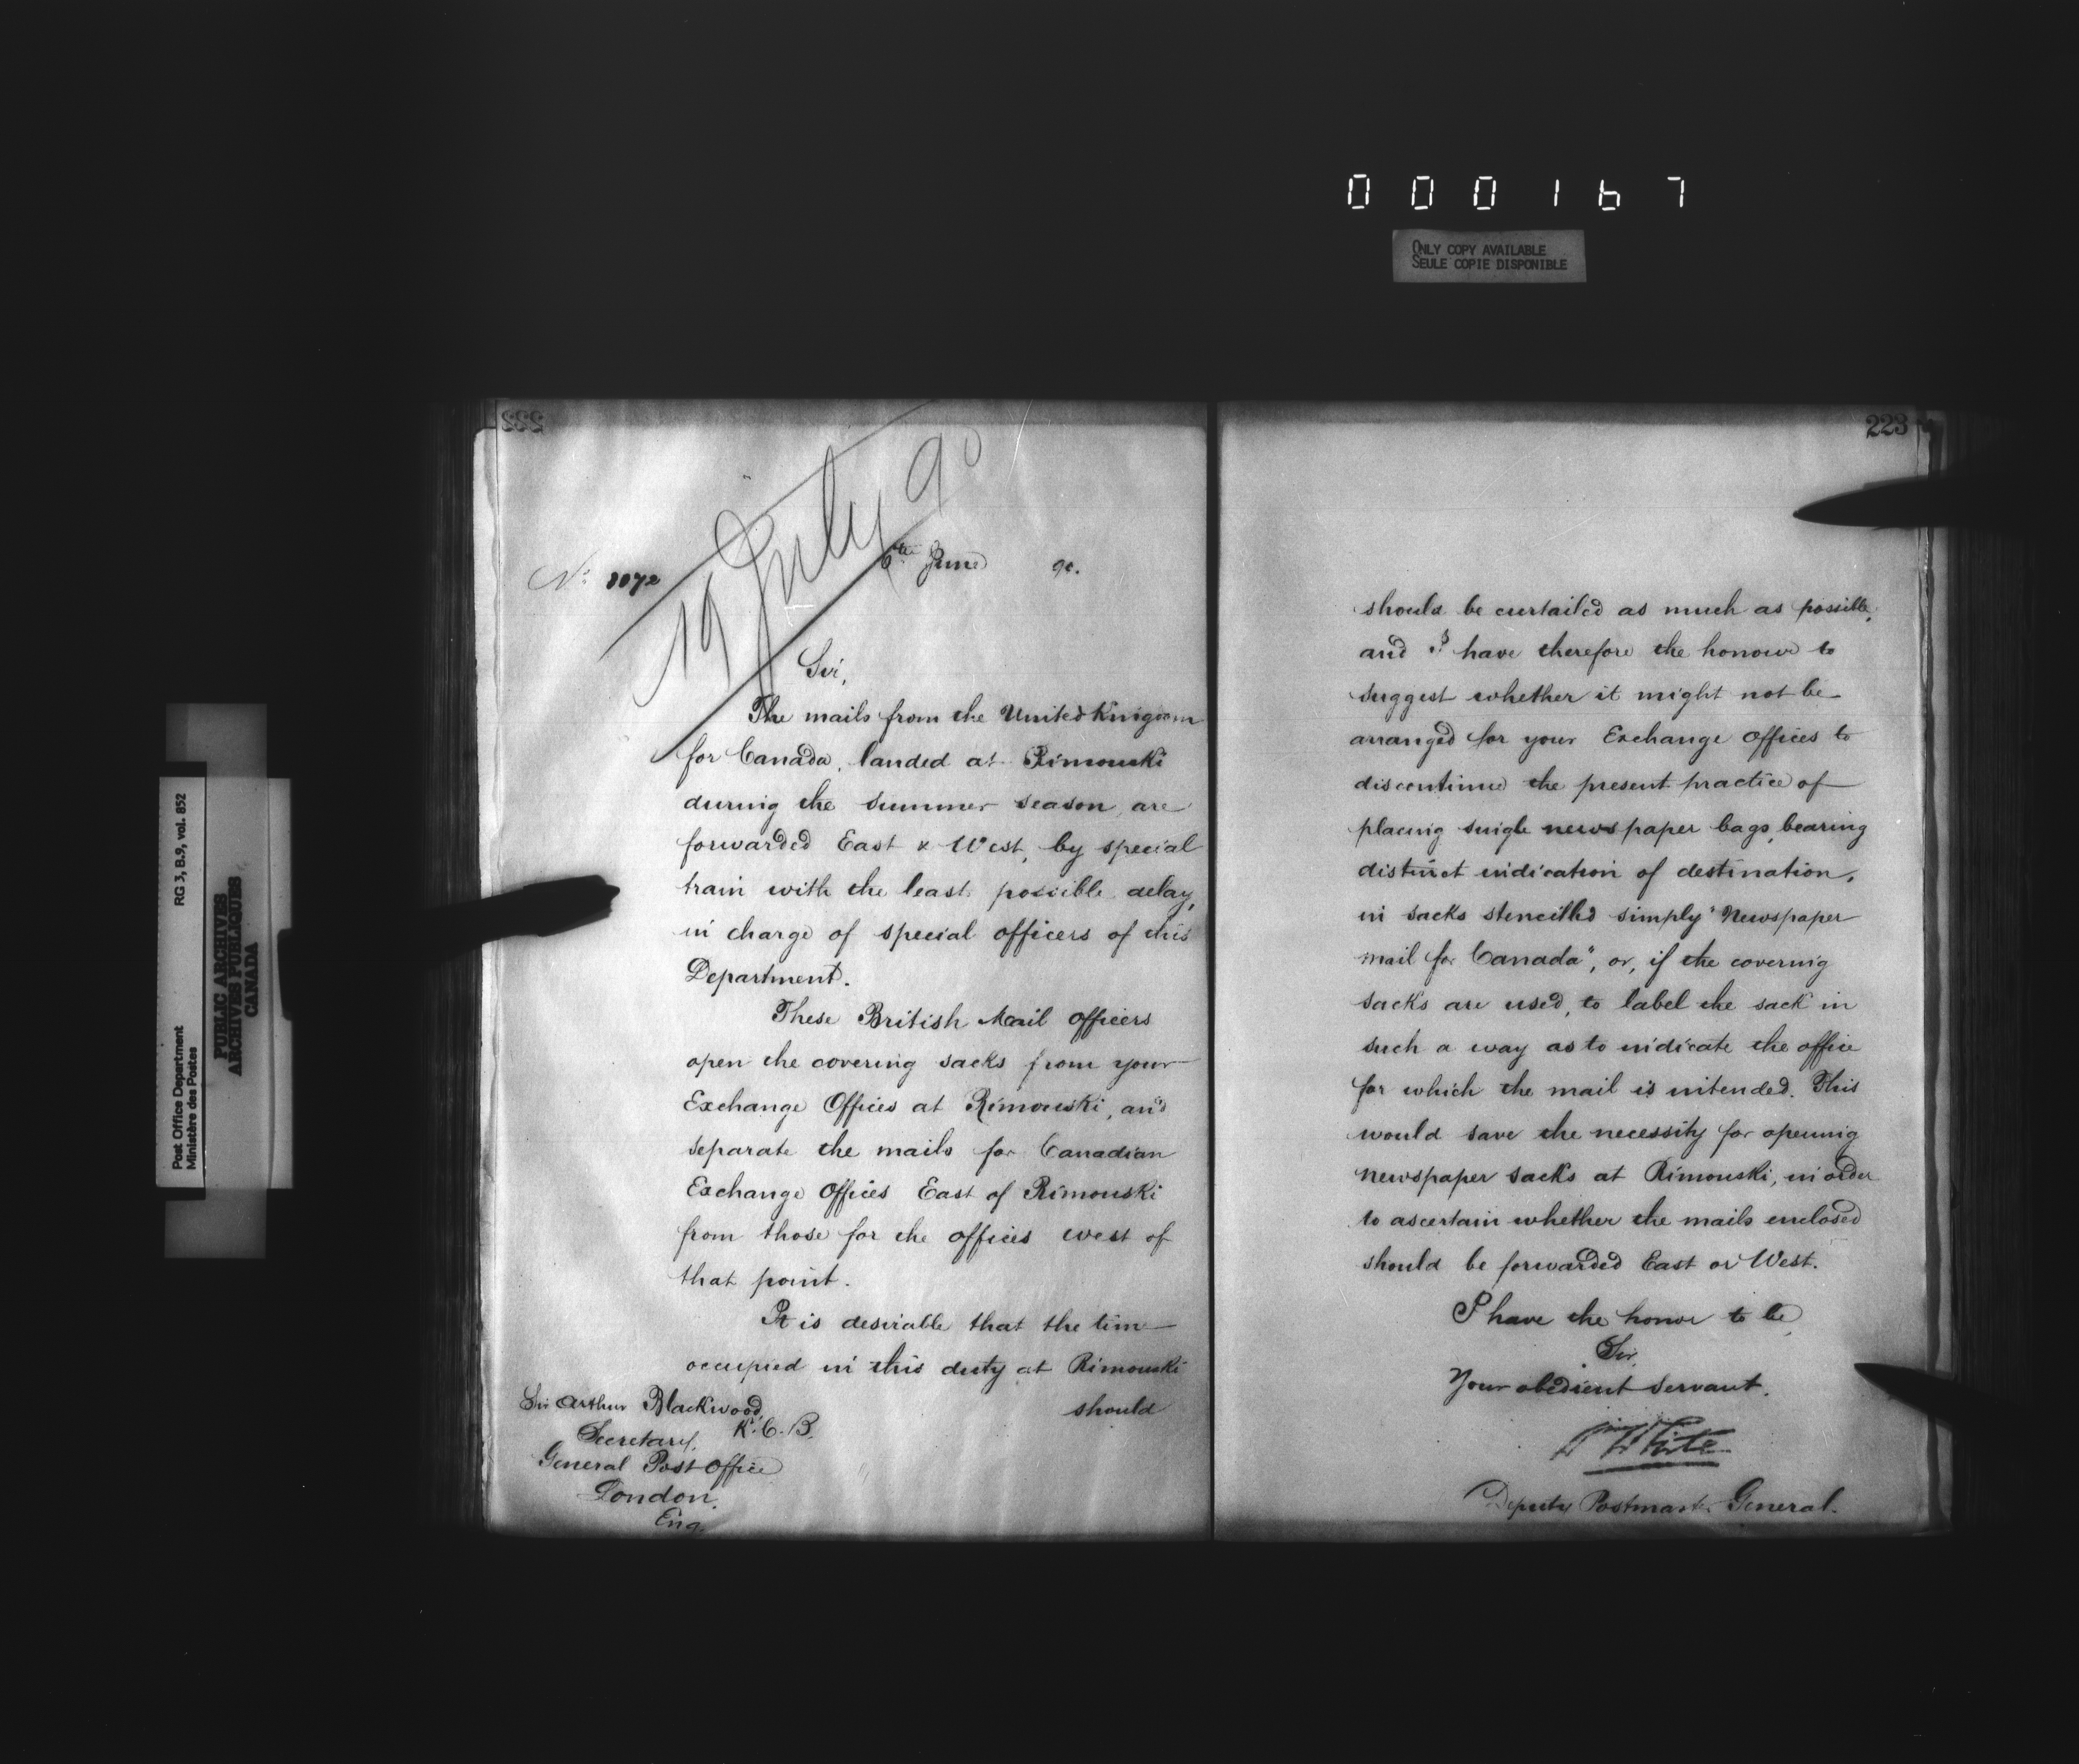 000167
ONLY COPY AVAILABLE
SEULE COPIE DISPONIBLE
Post Office Department
Ministère des Postes
RG 3, B.9, vol. 852
PUBLIC ARCHIVES
ARCHIVES PUBLIQUES
CANADA
222
19 July 90
No. 1072
6th June 90.
Sir,
The mails from the United Kingdom
for Canada, landed at Rimouski
during the summer season, are
forwarded East & West, by special
train with the least possible delay,
in charge of special officers of this
Department.
These British Mail Officers
open the covering sacks from your
Exchange Offices at Rimouski, and
separate the mails for Canadian
Exchange Offices East of Rimouski
from those for the offices west of
that point.
It is desirable that the time
occupied in this duty at Rimouski
should
Sir Arthur Blackwood,
K.C.B.
Secretary,
General Post Office
London.
Eng.
223
should be curtailed as much as possible,
and I have therefore the honour to
suggest whether it might not be
arranged for your Exchange Offices to
discontinue the present practice of
placing single newspaper bags, bearing
distinct indication of destination,
in sacks stencilled simply "Newspaper
mail for Canada", or, if the covering
sacks are used, to label the sack in
such a way as to indicate the office
for which the mail is intended. This
would save the necessity for opening
newspaper sacks at Rimouski, in order
to ascertain whether the mails enclosed
should be forwarded East or West.
I have the honor to be
Sir,
Your obedient servant.
White
Deputy Postmaster General.